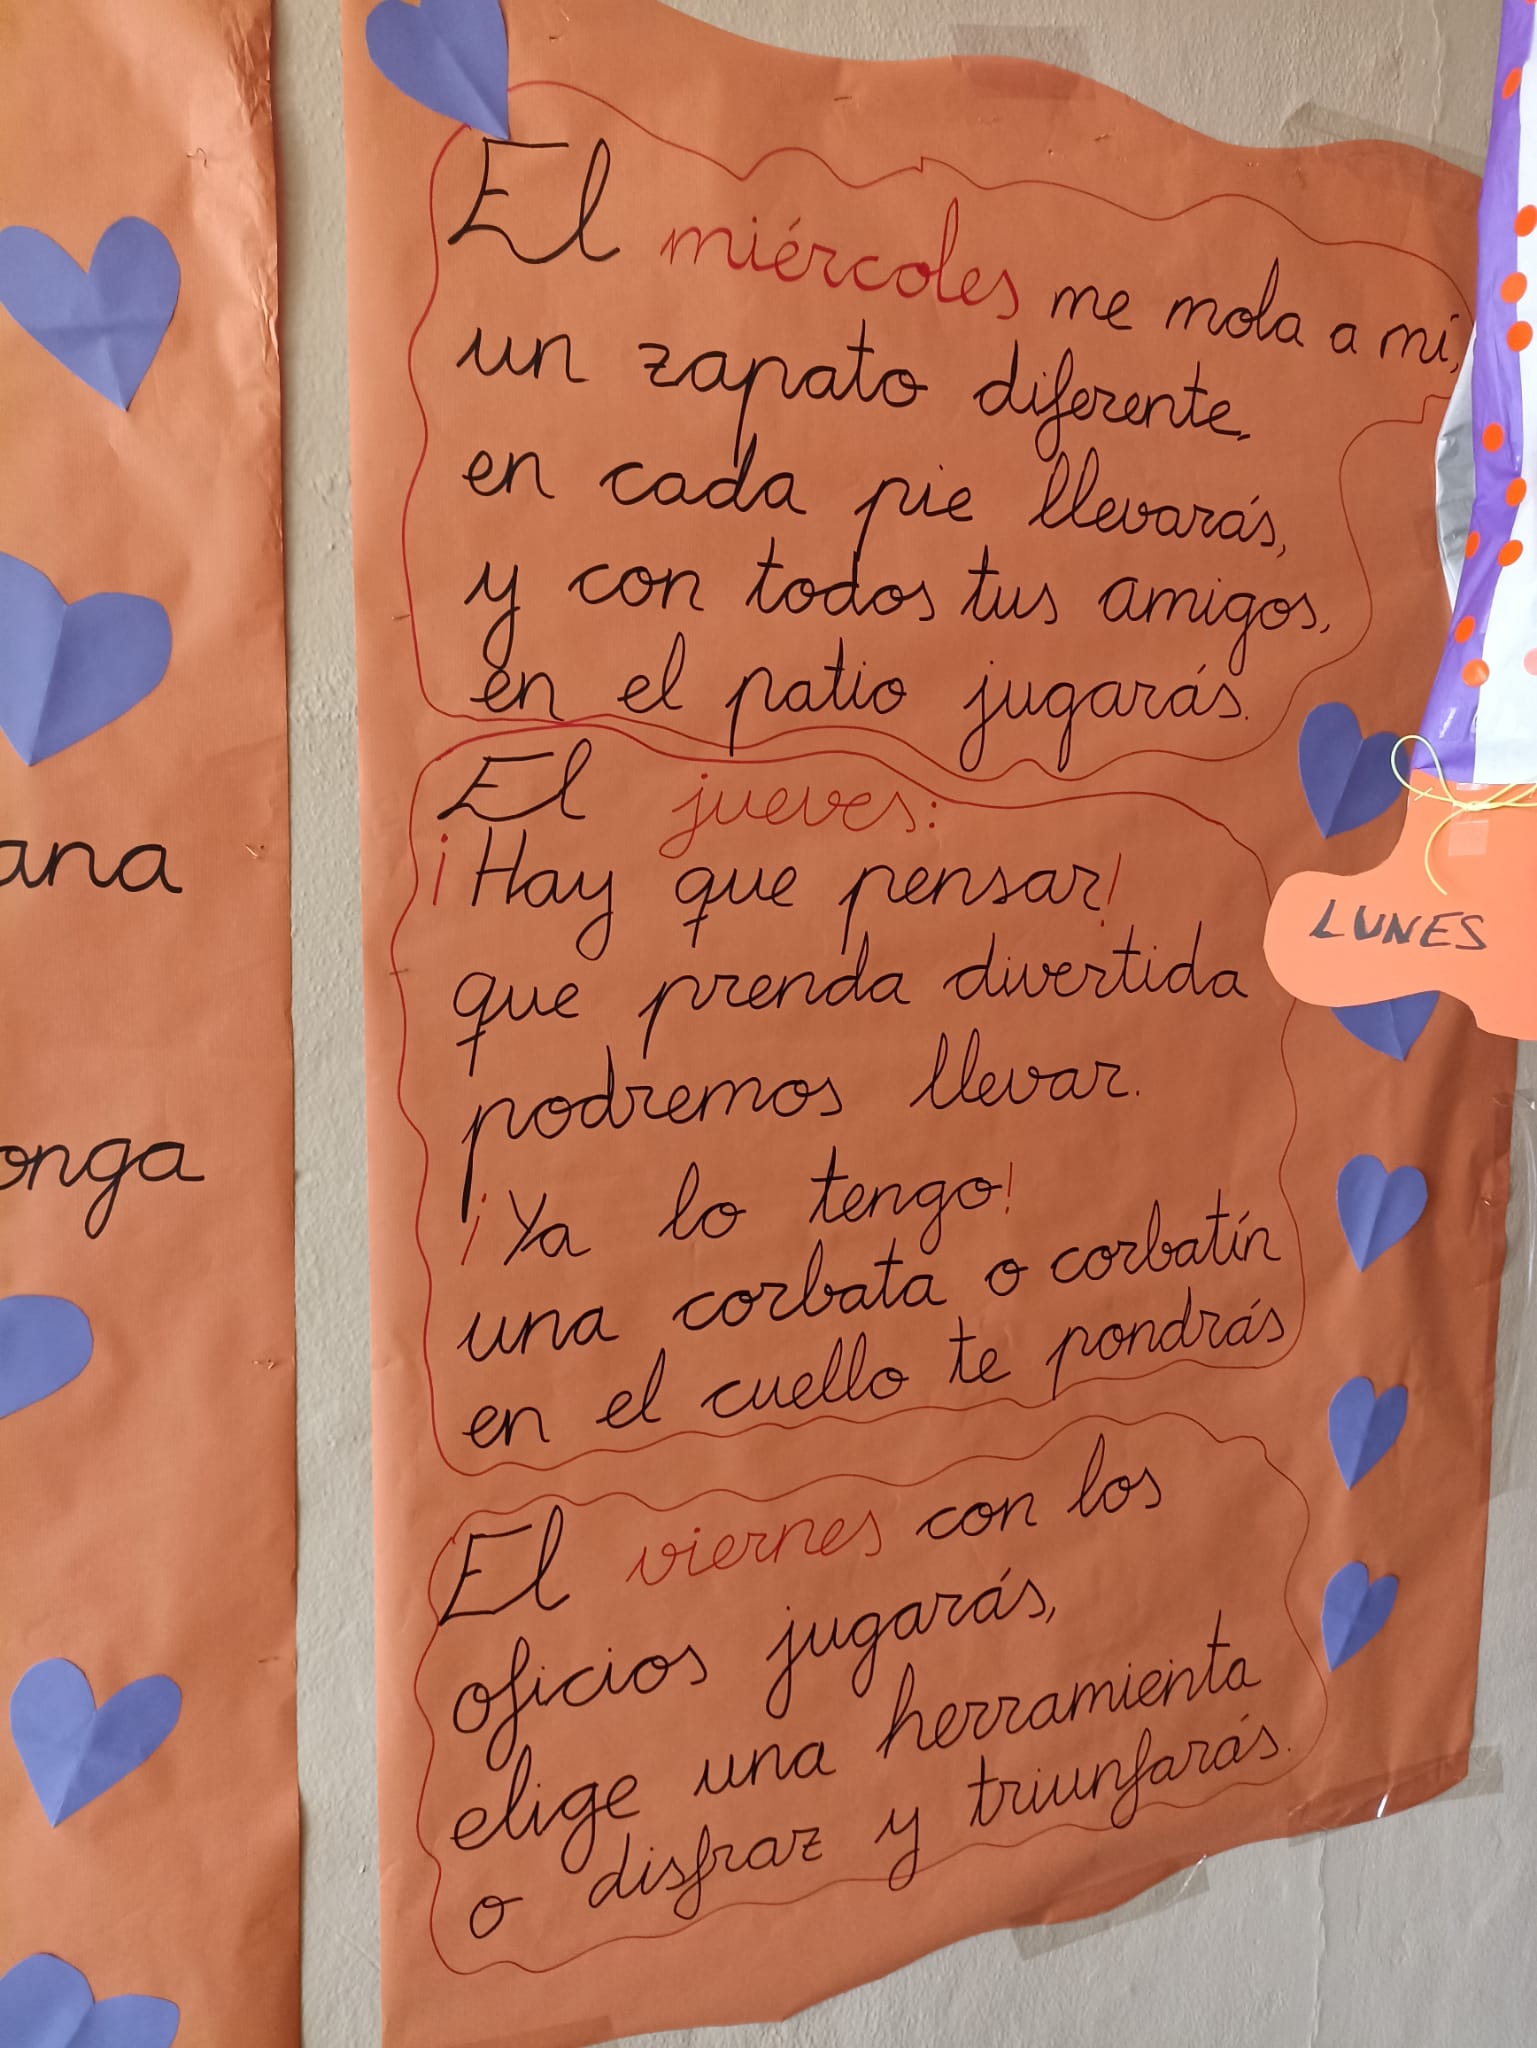 El miércoles me mola a mí,
un zapato diferente,
en cada pie llevarás,
y con todos tus amigos,
en el patio jugarás.
El jueves:
¡Hay que pensar!
que prenda divertida
podremos llevar.
¡Ya lo tengo!
una corbata o corbatín
en el cuello te pondrás
El viernes con los
oficios jugarás,
elige una herramienta
o disfraz y triunfarás.
ana
onga
LUNES